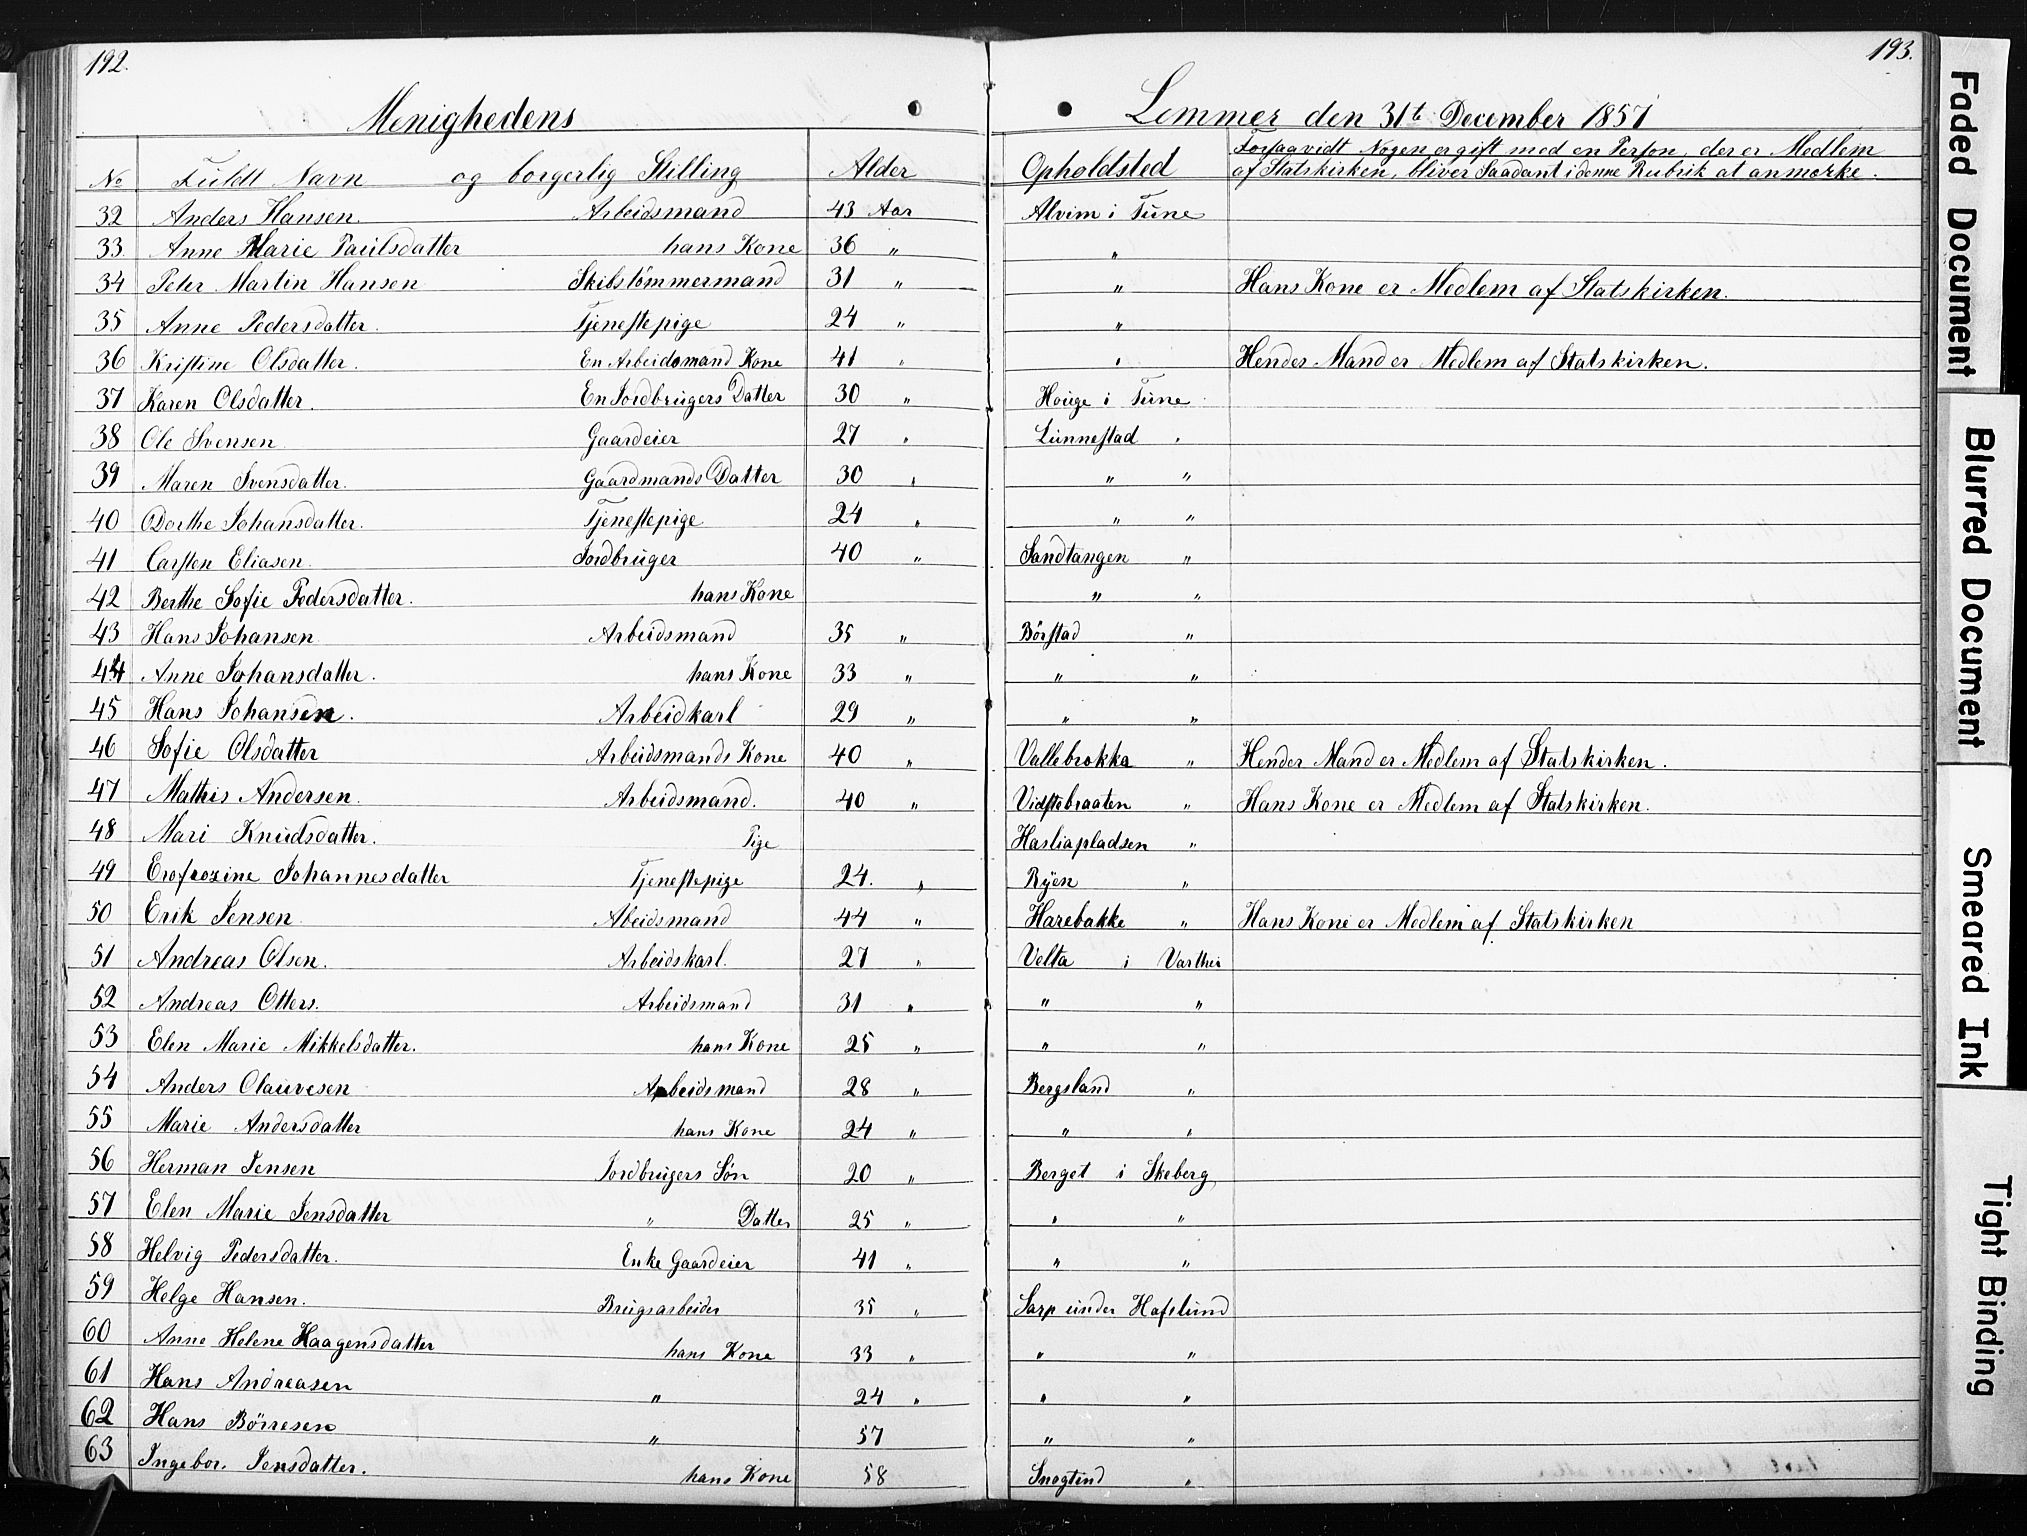 192.
193.
Menighedens
Lemmer den 31te December 1857
No Fuldt Navn og borgerlig Stilling Alder Opholdsted Forsaavidt Nogen er gift med en Person, der er Medlem
af Statskirken, bliver Saadant i denne Rubrik at anmærke.
32 Anders Hansen Arbeidsmand 43 Aar Alvim i Tune
33. Anne Marie Paulsdatter hans Kone 36 " "
34 Peter Martin Hansen Skibstømmermand 31 " " Hans Kone er Medlem af Statskirken.
35 Anne Pedersdatter. Tjenestepige 24 " "
36 Kristine Olsdatter. En Arbeidsmand Kone 41 " " Hendes Mand er Medlem af Statskirken.
37 Karen Olsdatter. En Jordbrugers Datter 30 " Houge i Tune
38 Ole Svensen Gaardeier 27 " Lunnestad "
39 Maren Svensdatter. Gaardmands Datter 30 " " "
40 Dorthe Johansdatter. Tjenestepige 24 " " "
41 Carsten Eliasen. Jordbruger 40 " Sandtangen "
42 Berthe Sofie Pedersdatter. hans Kone " "
43 Hans Johansen Arbeidsmand 35 " Börstad "
44 Anne Johansdatter. hans Kone 33 " " "
45 Hans Johansen. Arbeidkarl 29 " " "
46 Sofie Olsdatter Arbeidsmands Kone 40 " Vallebrækka " Hendes Mand er Medlem af Statskirken.
47 Mathis Andersen. Arbeidsmand. 40 " Vidstebraaten " Hans Kone er Medlem af Statskirken.
48 Mari Knudsdatter. Pige Hasliapladsen "
49 Erofrozine Johannesdatter Tjenestepige 24. " Ryen "
50 Erik Jensen Abeidsmand 44 " Harebakke " Hans Kone er Medlem af Statskirken
51 Andreas Olsen. Arbeidskarl. 27 " Velta i Varthei
52 Andreas Otters. Arbeidsmand 31 " " "
53 Elen Marie Mikkelsdatter. hans Kone 25 " " "
54 Anders Olauvesen Arbeidsmand 28 " Bergsland "
55 Marie Andersdatter hans Kone 24 " " "
56 Herman Jensen Jordbrugers Søn 20 " Berget i Skeberg
57 Elen Marie Jensdatter " Datter 25 " " "
58 Helvig Pedersdatter. Enke Gaardeier 41 " " "
59 Helge Hansen. Brugsarbeider 35 " Sarp under Hafslund
60 Anne Helene Haagensdatter hans Kone 33 " " "
61 Hans Andreasen " 24 " " "
62 Hans Börresen " 57 " "
63 Ingebor. Jensdatter. hans Kone 58 "
Faded Document
Blurred Document
Smeared Ink
Tight Binding